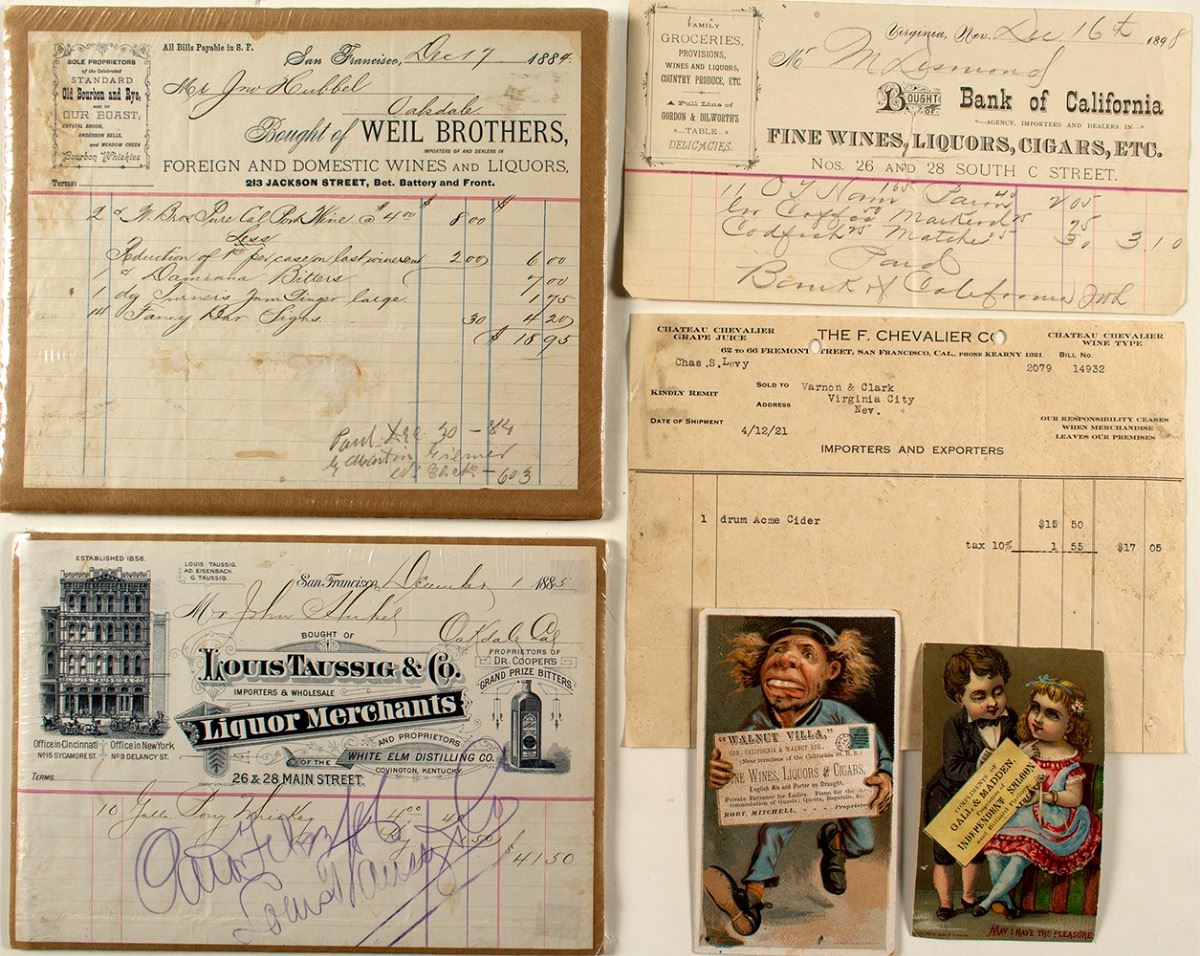 SOLE PROPRIETORS
of the Celebrated
STANDARD
Old Bourbon and Rye,
AND OF
OUR BOAST,
CRYSTAL BROOK,
ANDERSON BELLE,
and MEADOW CREEK
Bourbon Whiskies
Terms:
All Bills Payable in S. F.
San Francisco, Dec 17 1884
Mr Jno Hubbel
Oakdale
Bought of WEIL BROTHERS,
IMPORTERS OF AND DEALERS IN
FOREIGN AND DOMESTIC WINES AND LIQUORS,
213 JACKSON STREET, Bet. Battery and Front.
2 W. Bros Pure Cal Port Wine @ 4.00 $ 8 00 $
Less
Reduction of per case on last wine sent 2 00 6 00
1 Damiana Bitters 7 00
1 dz Turners Jam Ginger large 1 75
14 Fancy Bar Signs 30 4 20
$ 18 95
Paid Dec 30 - 84
603
FAMILY
GROCERIES,
PROVISIONS,
WINES AND LIQUORS,
COUNTRY PRODUCE, ETC.
A Full Line of
GORDON & DILWORTH'S
TABLE
DELICACIES.
Virginia, Nev. Dec 16th 1898
M Desmond
BOUGHT OF Bank of California
AGENCY, IMPORTERS AND DEALERS IN
FINE WINES, LIQUORS, CIGARS, ETC.
NOS. 26 AND 28 SOUTH C STREET.
11 Ham 2 05
Coffee 50 Mackerel 25 75
Codfish 25 Matches 05 30 3 10
Paid
Bank of California
CHATEAU CHEVALIER
GRAPE JUICE
THE F. CHEVALIER CO
CHATEAU CHEVALIER
WINE TYPE
62 TO 66 FREMONT STREET, SAN FRANCISCO, CAL. PHONE KEARNY 1821
BILL NO.
Chas.S.Levy
2079 14932
KINDLY REMIT
SOLD TO Varnon & Clark
ADDRESS Virginia City
Nev.
DATE OF SHIPMENT 4/12/21
OUR RESPONSIBILITY CEASES
WHEN MERCHANDISE
LEAVES OUR PREMISES
IMPORTERS AND EXPORTERS
1 drum Acme Cider $15 50
tax 10% 1 55 $17 05
ESTABLISHED 1856.
LOUIS TAUSSIG & CO
Office in Cincinnati
No 15 SYCAMORE ST.
Office in New York
No 9 DELANCY ST.
TERMS
LOUIS TAUSSIG.
AD. EISENBACH.
G. TAUSSIG.
San Francisco, December 1 1885
Mr John
Oakdale Cal
BOUGHT OF
LOUIS TAUSSIG & CO.
IMPORTERS & WHOLESALE
Liquor Merchants
AND PROPRIETORS
OF THE WHITE ELM DISTILLING CO.
COVINGTON, KENTUCKY.
26 & 28 MAIN STREET.
PROPRIETORS OF
DR. COOPER'S
GRAND PRIZE BITTERS.
10 Galls Whiskey 4 00 40
1.50 $41.50
Louis Taussig & Co
"WALNUT VILLA,"
COR. CALIFORNIA & WALNUT STS.
FINE WINES, LIQUORS & CIGARS,
English Ale and Porter on Draught.
Private Entrance for Ladies.
RORY, MITCHELL, - Proprietor
COMPLIMENTS OF
GALL & MADDEN,
Proprietors of
INDEPENDENT SALOON
and Billiard Parlors
MAY I HAVE THE PLEASURE